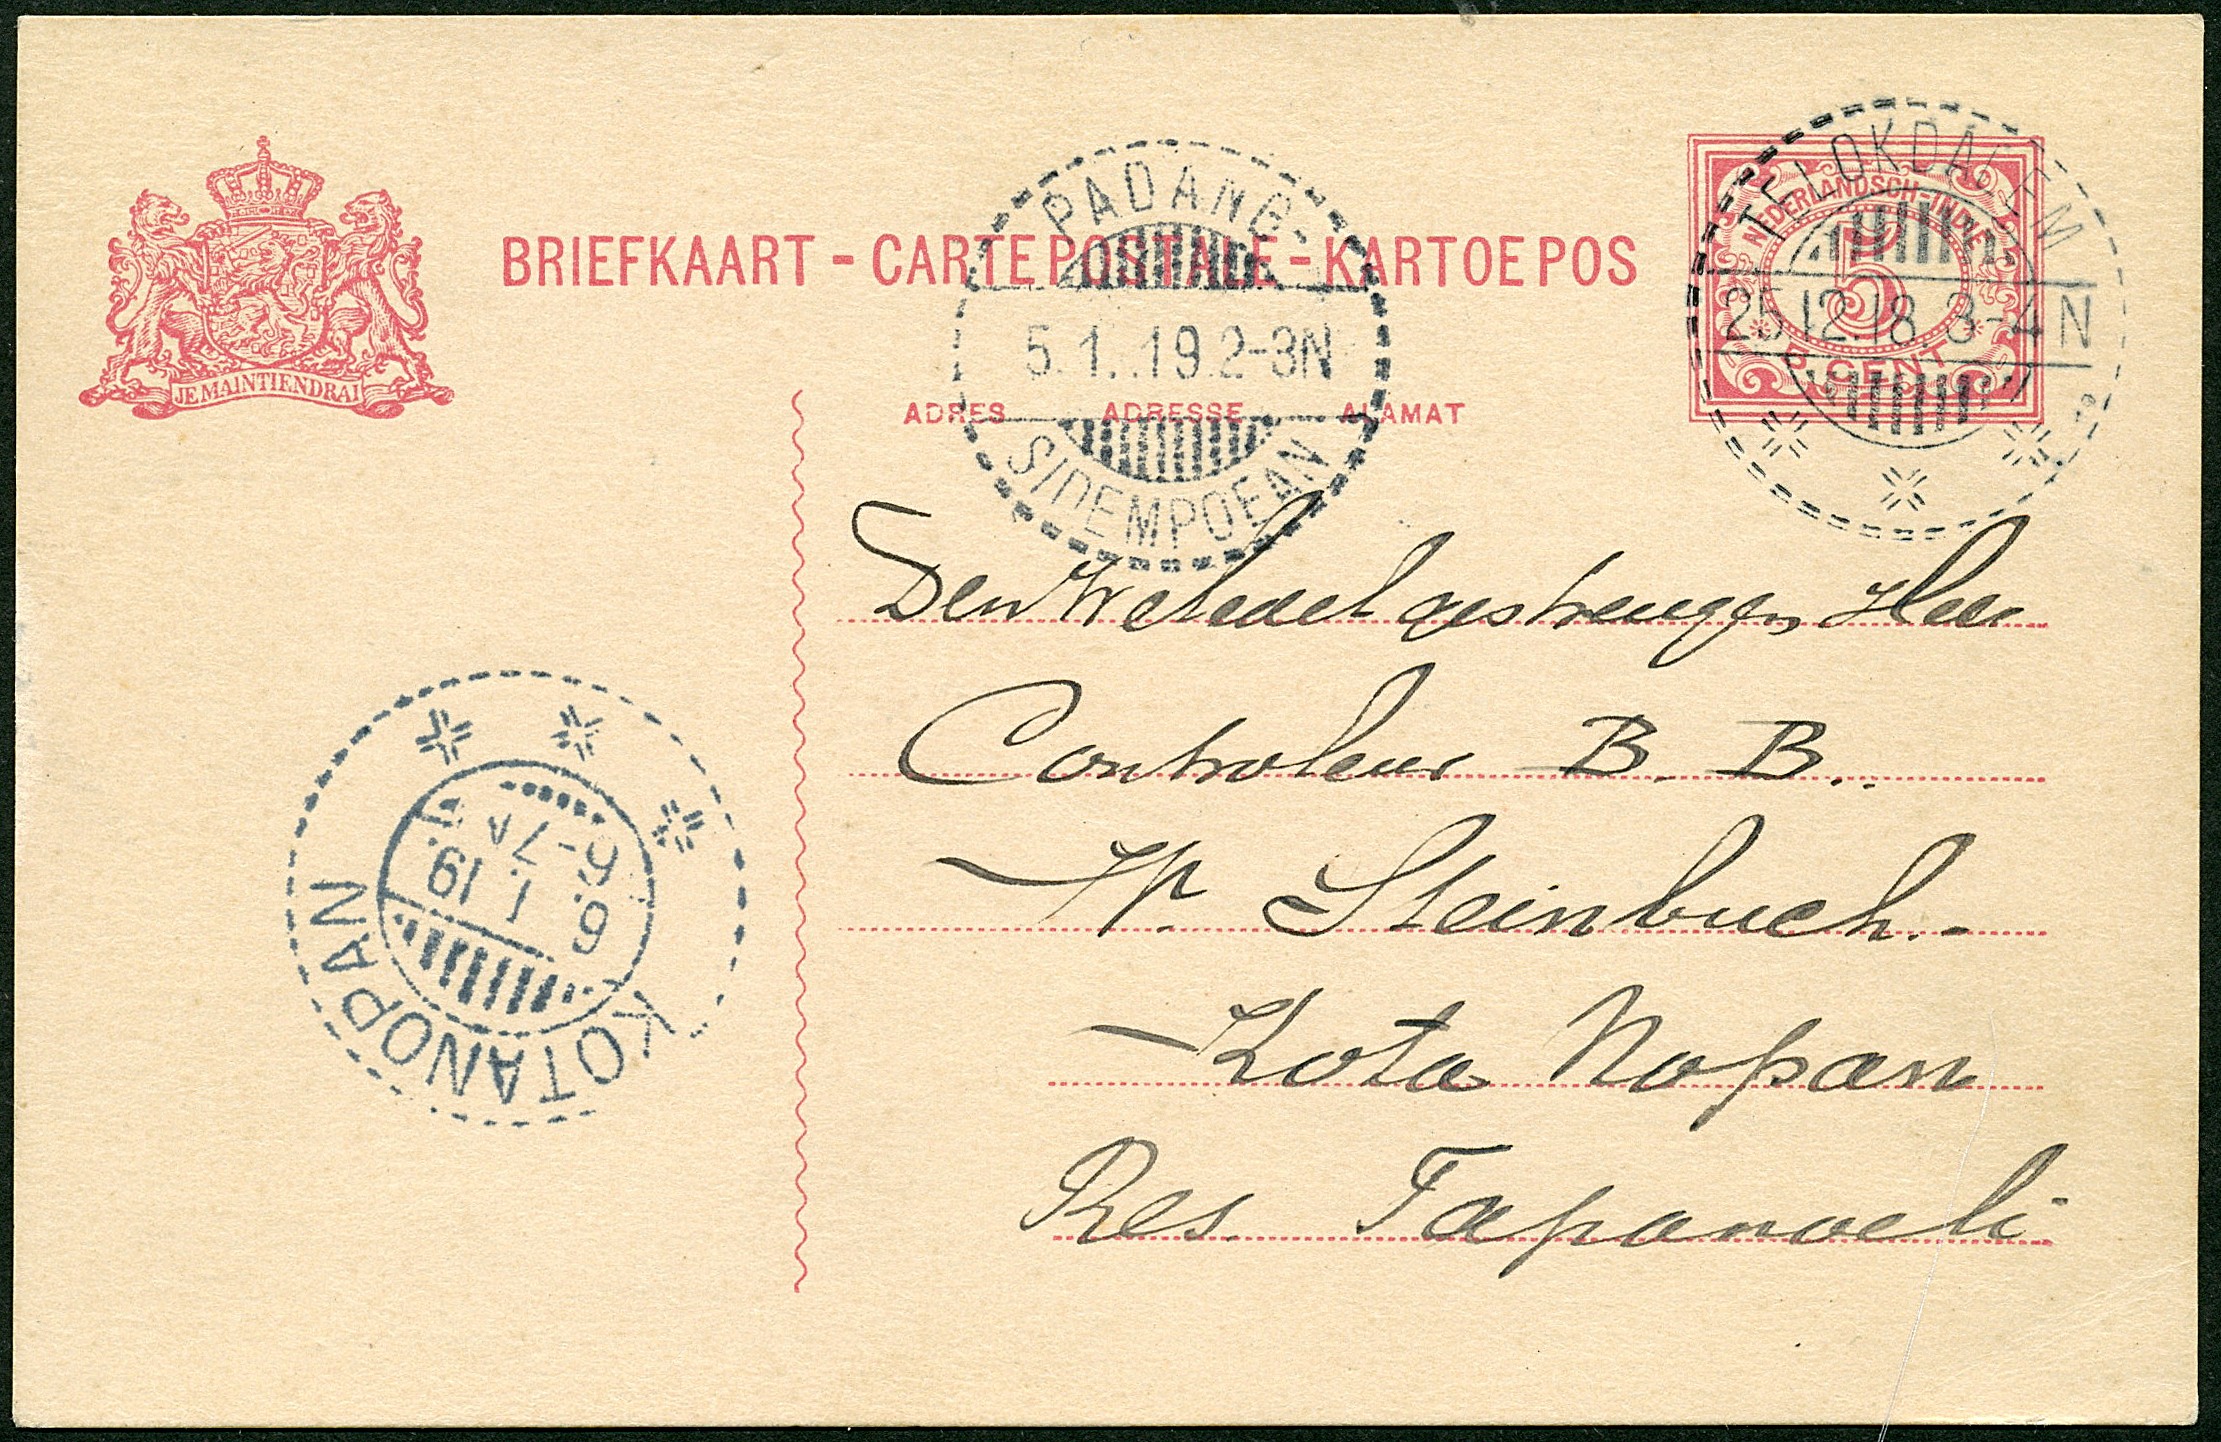 JE MAINTIENDRAI
BRIEFKAART - CARTE POSTALE - KARTOE POS
NEDERLANDSCH-INDIE
5
5 CENT
TELOKDALEM
25.12.18 3-4N
PADANG-
5.1.19.2-3N
SIDEMPOEAN
ADRES ADRESSE ALAMAT
Den Weledelgestrengen Heer
Controleur B. B..
W. Steinbuch.-
Kota Nopan
Res. Tapanoeli
KOTANOPAN
6.1.19. 6-7